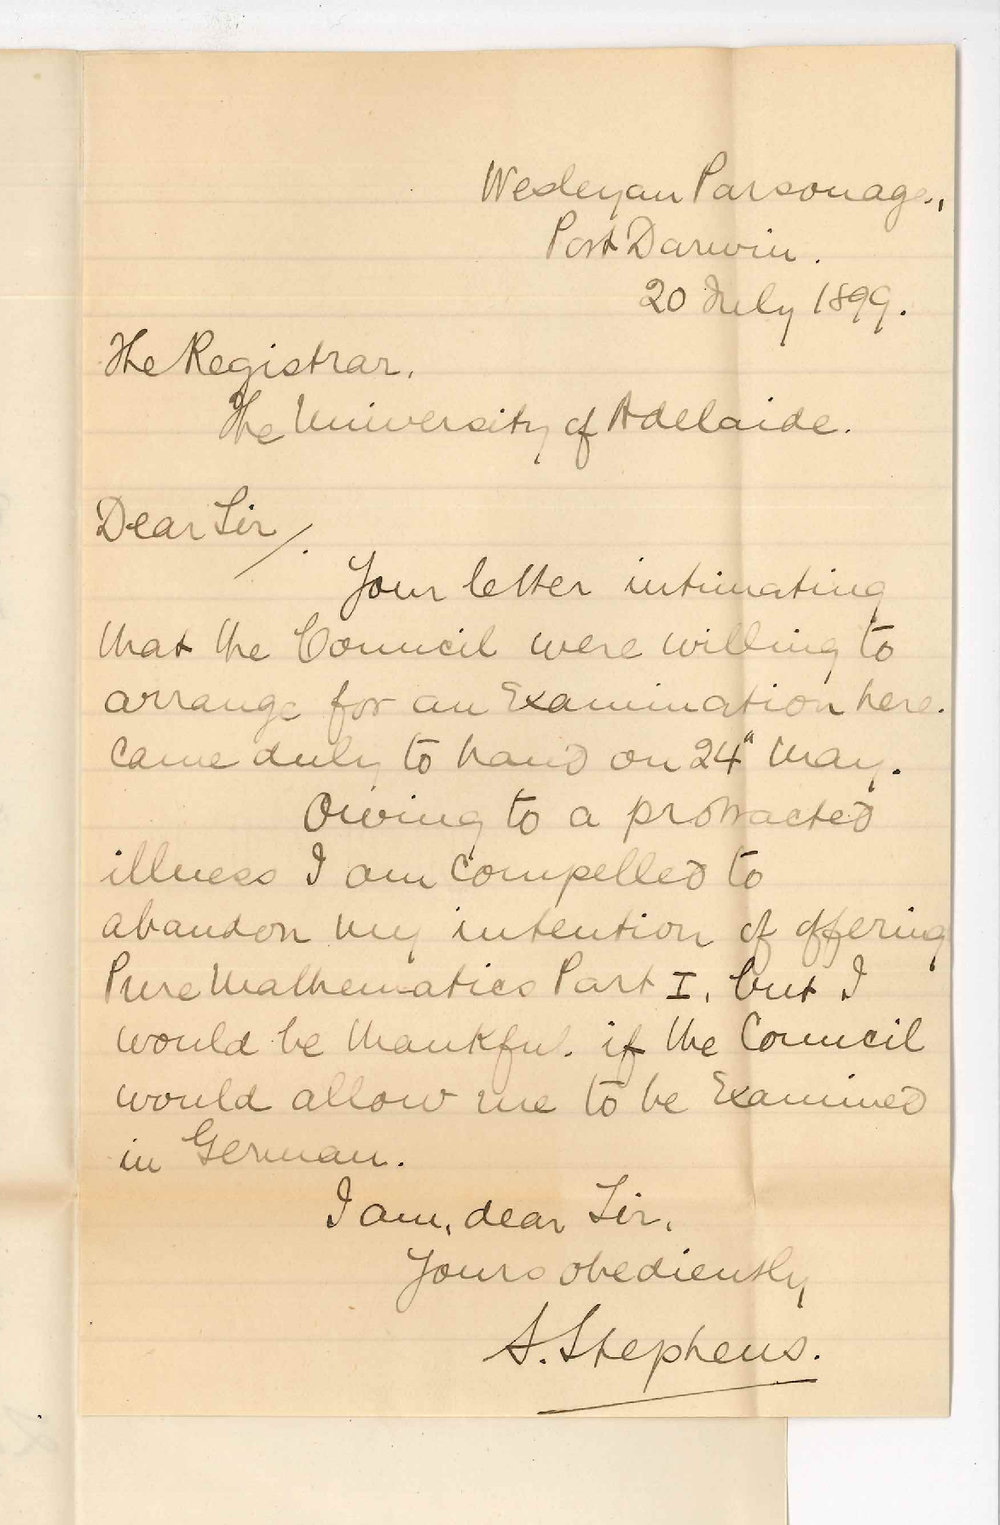 Wesleyan Parsonage,
Port Darwin.
20 July 1899.
The Registrar.
The University of Adelaide.
Dear Sir/.
Your letter intimating
that the Council were willing to
arrange for an Examination here.
came duly to hand on 24" May.
Owing to a protracted
illness I am compelled to
abandon my intention of offering
Pure Mathematics Part I, but I
would be thankful if the Council
would allow me to be Examined
in German.
I am, dear Sir,
Yours obediently
S. Stephens.